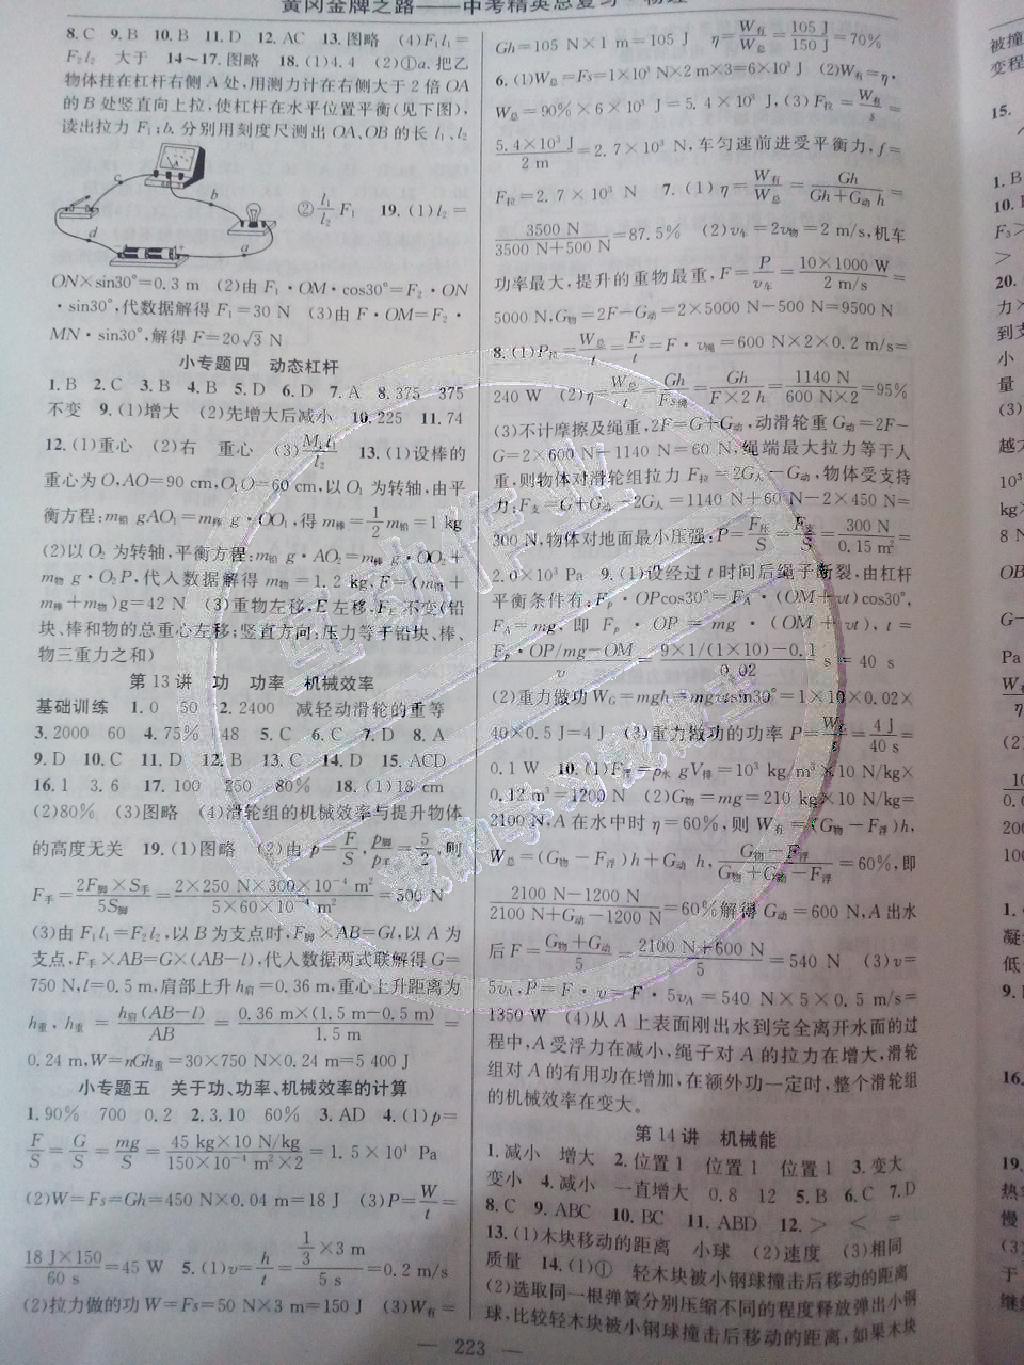 黄冈金牌之路——中考精英总复习·物理
8.C 9.B 10.B 11.D 12.AC 13.图略 (4)F₁l₁=
F₂l₂ 大于 14~17.图略 18.(1)4.4 (2)①a.把乙
物体挂在杠杆右侧A处,用测力计在右侧大于2倍OA
的B处竖直向上拉,使杠杆在水平位置平衡(见下图),
读出拉力F₁;b.分别用刻度尺测出OA、OB的长l₁、l₂
c
b
d
a
②l₁/l₂ F₁ 19.(1)l₂=
ON×sin30°=0.3 m (2)由F₁·OM·cos30°=F₂·ON
·sin30°,代数据解得F₁=30 N (3)由F·OM=F₂·
MN·sin30°,解得F=20√3 N
小专题四 动态杠杆
1.B 2.C 3.B 4.B 5.D 6.D 7.A 8.375 375
不变 9.(1)增大 (2)先增大后减小 10.225 11.74
12.(1)重心 (2)右 重心 (3)M₁l₁/l₂ 13.(1)设棒的
重心为O,AO=90 cm,O₁O=60 cm,以O₁为转轴,由平
衡方程:m铅gAO₁=m棒g·OO₁,得m棒=1/2m铅=1 kg
(2)以O₂为转轴,平衡方程:m铅g·AO₂=m棒g·OO₂+
m物g·O₂P,代入数据解得m物=1.2 kg,F=(m铅+
m棒+m物)g=42 N (3)重物左移,E左移,F不变(铅
块、棒和物的总重心左移;竖直方向:压力等于铅块、棒、
物三重力之和)
第13讲 功 功率 机械效率
基础训练 1.0 50 2.2400 减轻动滑轮的重等
3.2000 60 4.75% 48 5.C 6.C 7.D 8.A
9.D 10.C 11.D 12.B 13.C 14.D 15.ACD
16.1 3.6 17.100 250 80% 18.(1)18 cm
(2)80% (3)图略 (4)滑轮组的机械效率与提升物体
的高度无关 19.(1)图略 (2)由p=F/S,p脚/p手=5/2,则
F手=2F脚×S手/5S脚=2×250 N×300×10⁻⁴ m²/5×60×10⁻⁴ m²=500 N
(3)由F₁l₁=F₂l₂,以B为支点时,F脚×AB=Gl,以A为
支点,F手×AB=G×(AB-l),代人数据两式联解得G=
750 N,l=0.5 m,肩部上升h肩=0.36 m,重心上升距离为
h重,h重=h肩(AB-l)/AB=0.36 m×(1.5 m-0.5 m)/1.5 m=
0.24 m,W=nGh重=30×750 N×0.24 m=5 400 J
小专题五 关于功、功率、机械效率的计算
1.90% 700 0.2 2.3.10 60% 3.AD 4.(1)p=
F/S=G/S=mg/S=45 kg×10 N/kg/150×10⁻⁴ m²×2=1.5×10⁴ Pa
(2)W=Fs=Gh=450 N×0.04 m=18 J (3)P=W/t=
18 J×150/60 s=45 W 5.(1)v=h/t=1/3×3 m/5 s=0.2 m/s
(2)拉力做的功W=Fs=50 N×3 m=150 J (3)W有=
Gh=105 N×1 m=105 J η=W有/W总=105 J/150 J=70%
6.(1)W总=Fs=1×10³ N×2 m×3=6×10³ J (2)W有=η·
W总=90%×6×10³ J=5.4×10³ J,(3)F拉=W有/s=
5.4×10³ J/2 m=2.7×10³ N,车匀速前进受平衡力,f=
F拉=2.7×10³ N 7.(1)η=W有/W总=Gh/Gh+G动h=
3500 N/3500 N+500 N=87.5% (2)v车=2v物=2 m/s,机车
功率最大,提升的重物最重,F=P/v车=10×1000 W/2 m/s=
5000 N,G物=2F-G动=2×5000 N-500 N=9500 N
8.(1)P拉=W总/t=Fs/t=F·v绳=600 N×2×0.2 m/s=
240 W (2)η=W总/t=Gh/Fs绳=Gh/F×2h=1140 N/600 N×2=95%
(3)不计摩擦及绳重,2F=G+G动,动滑轮重G动=2F-
G=2×600 N-1140 N=60 N,绳端最大拉力等于人
重,则物体对滑轮组拉力F拉=2G人-G动,物体受支持
力:F支=G+G动-2G人=1140 N+60 N-2×450 N=
300 N,物体对地面最小压强:P=F压/S=F支/S=300 N/0.15 m²=
2.0×10³ Pa 9.(1)设经过t时间后绳子断裂,由杠杆
平衡条件有:Fp·OPcos30°=FA·(OM+vt)cos30°,
FA=mg,即Fp·OP=mg·(OM+vt),t=
Fp·OP/mg-OM/v=9×1/(1×10)-0.1/0.02 s=40 s
(2)重力做功WG=mgh=mgvtsin30°=1×10×0.02×
40×0.5 J=4 J (3)重力做功的功率P=WG/t=4 J/40 s=
0.1 W 10.(1)F浮=ρ水gV排=10³ kg/m³×10 N/kg×
0.12 m³=1200 N (2)G物=mg=210 kg×10 N/kg=
2100 N,A在水中时η=60%,则W有=(G物-F浮)h,
W总=(G物-F浮)h+G动h,G物-F浮/G物+G动-F浮=60%,即
2100 N-1200 N/2100 N+G动-1200 N=60%解得G动=600 N,A出水
后F=G物+G动/5=2100 N+600 N/5=540 N (3)v=
5vA,P=F·v=F·5vA=540 N×5×0.5 m/s=
1350 W (4)从A上表面刚出水到完全离开水面的过
程中,A受浮力在减小,绳子对A的拉力在增大,滑轮
组对A的有用功在增加,在额外功一定时,整个滑轮组
的机械效率在变大。
第14讲 机械能
1.减小 增大 2.位置1 位置1 位置1 3.变大
变小 4.减小 一直增大 0.8 12 5.B 6.C 7.D
8.C 9.ABC 10.BC 11.ABD 12.> < =
13.(1)木块移动的距离 小球 (2)速度 (3)相同
质量 14.(1)① 轻木块被小钢球撞击后移动的距离
(2)选取同一根弹簧分别压缩不同的程度释放弹出小钢
球,比较轻木块被小钢球撞击后移动的距离,如果木块
— 223 —
被撞
变程
15.
1.B
10.
F₃>
>
20.
力×
到支
小
量
(3)
越大
10³
kg×
8 N
OB
G-
Pa
W有
(2)
100
1.
凝
低
9.
16.
19.
热
慢
(3)
于
继续